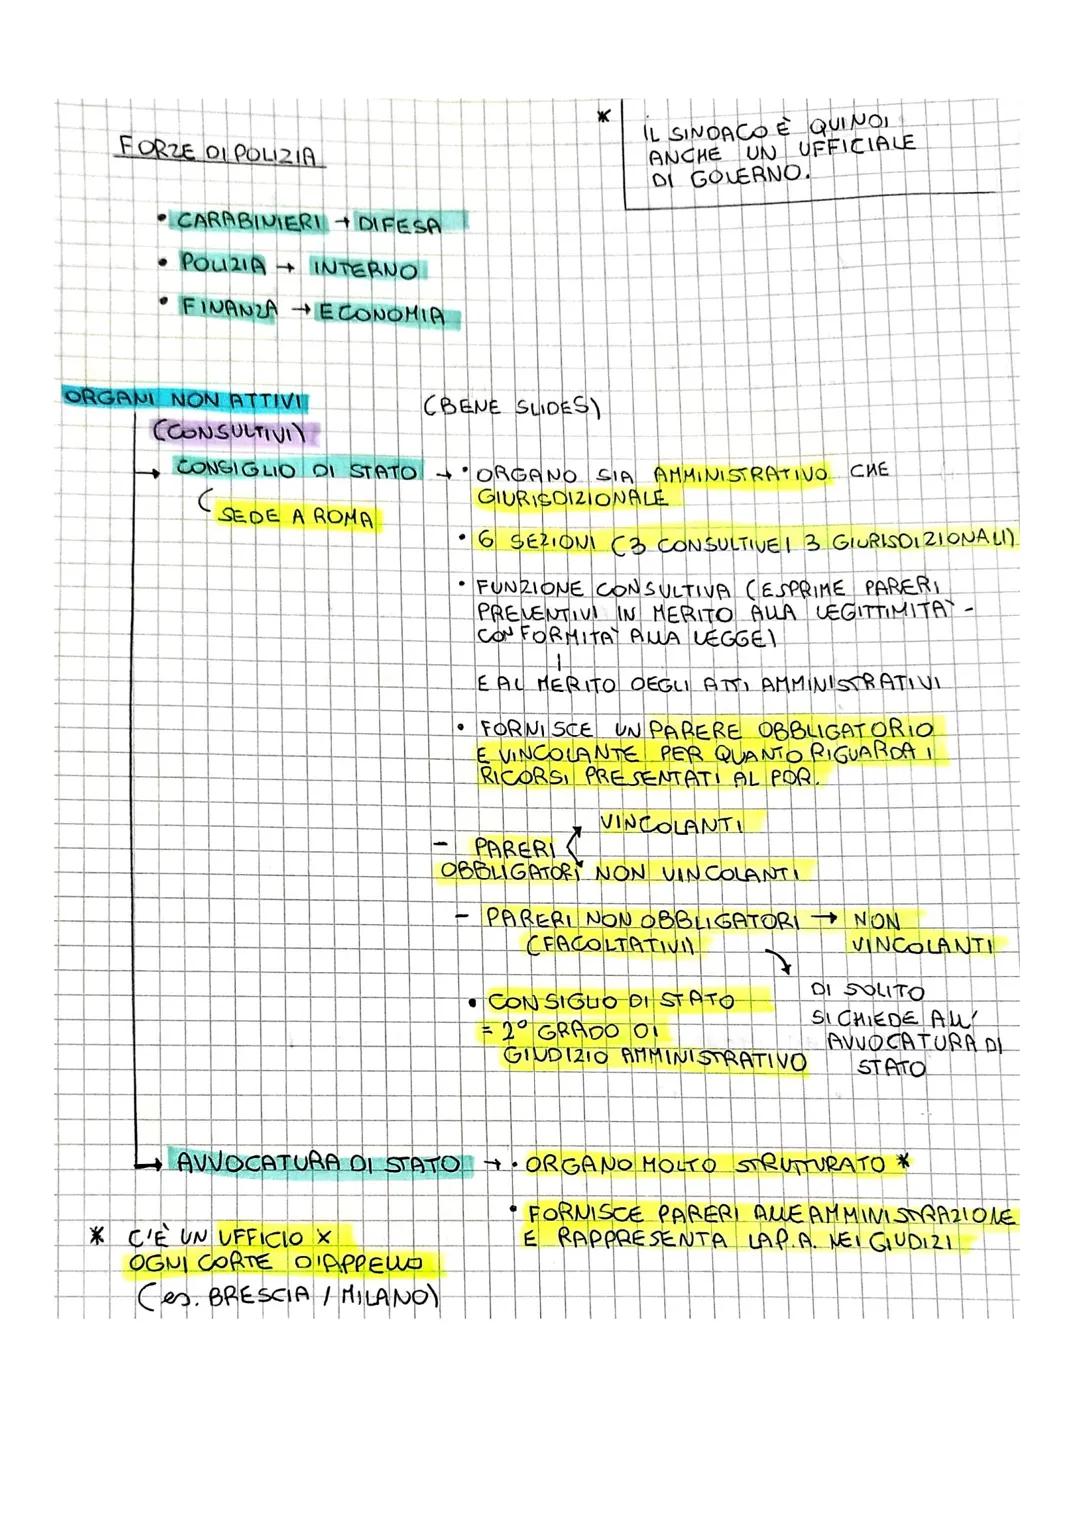 *
IL SINDACO È QUINDI
ANCHE UN UFFICIALE
DI GOVERNO.
FORZE DI POLIZIA
• CARABINIERI → DIFESA
• POLIZIA → INTERNO
• FINANZA → ECONOMIA
ORGANI NON ATTIVI (BENE SLIDES)
(CONSULTIVI)
→ CONSIGLIO DI STATO → • ORGANO SIA AMMINISTRATIVO CHE
GIURISDIZIONALE
( SEDE A ROMA
• 6 SEZIONI (3 CONSULTIVE, 3 GIURISDIZIONALI)
• FUNZIONE CONSULTIVA (ESPRIME PARERI
PREVENTIVI IN MERITO ALLA LEGITTIMITÀ -
CONFORMITÀ ALLA LEGGE)
E AL MERITO DEGLI ATTI AMMINISTRATIVI
• FORNISCE UN PARERE OBBLIGATORIO
E VINCOLANTE PER QUANTO RIGUARDA I
RICORSI PRESENTATI AL PDR.
VINCOLANTI
- PARERI
OBBLIGATORI NON VINCOLANTI
- PARERI NON OBBLIGATORI → NON
(FACOLTATIVI) VINCOLANTI
DI SOLITO
SI CHIEDE ALL'
AVVOCATURA DI
STATO
• CONSIGLIO DI STATO
= 2° GRADO DI
GIUDIZIO AMMINISTRATIVO
→ AVVOCATURA DI STATO → • ORGANO MOLTO STRUTTURATO *
• FORNISCE PARERI ALLE AMMINISTRAZIONE
E RAPPRESENTA LA P.A. NEI GIUDIZI
* C'È UN UFFICIO X
OGNI CORTE D'APPELLO
(es. BRESCIA / MILANO)